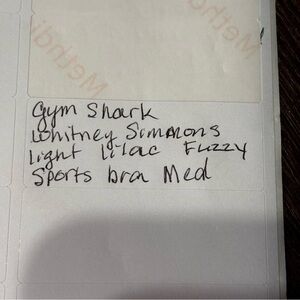 Gym Shark
Whitney Simmons
light lilac Fuzzy
Sports bra Med